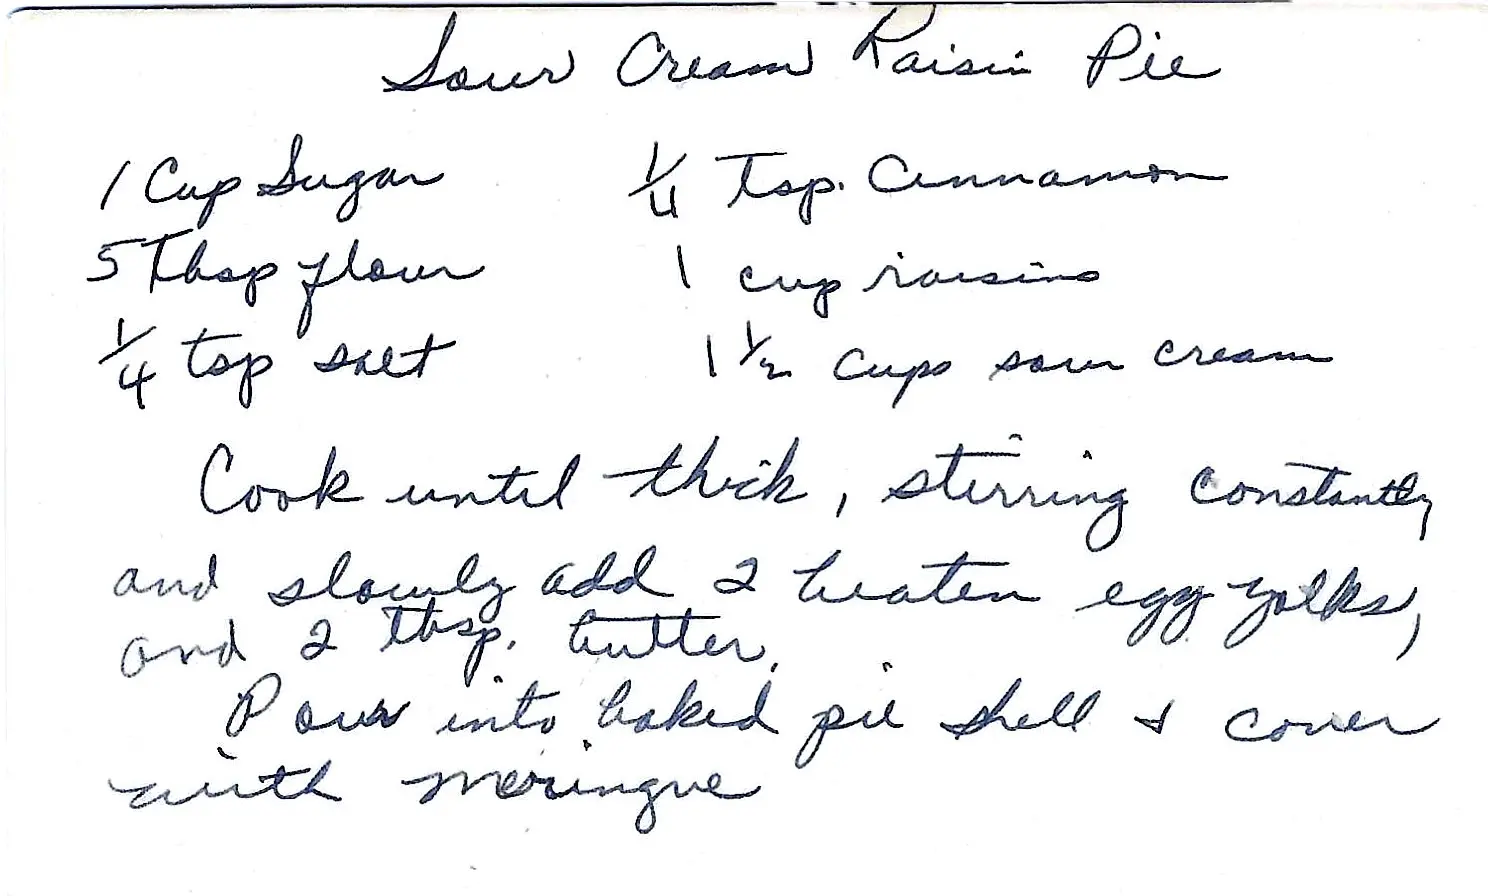 Sour Cream Raisin Pie
1 Cup Sugar
1/4 Tsp. Cinnamon
5 Tbsp flour
1 cup raisins
1/4 tsp salt
1 1/2 cups sour cream
Cook until thick, stirring constantly
and slowly add 2 beaten egg yolks,
and 2 tbsp. butter.
Pour into baked pie shell & cover
with meringue